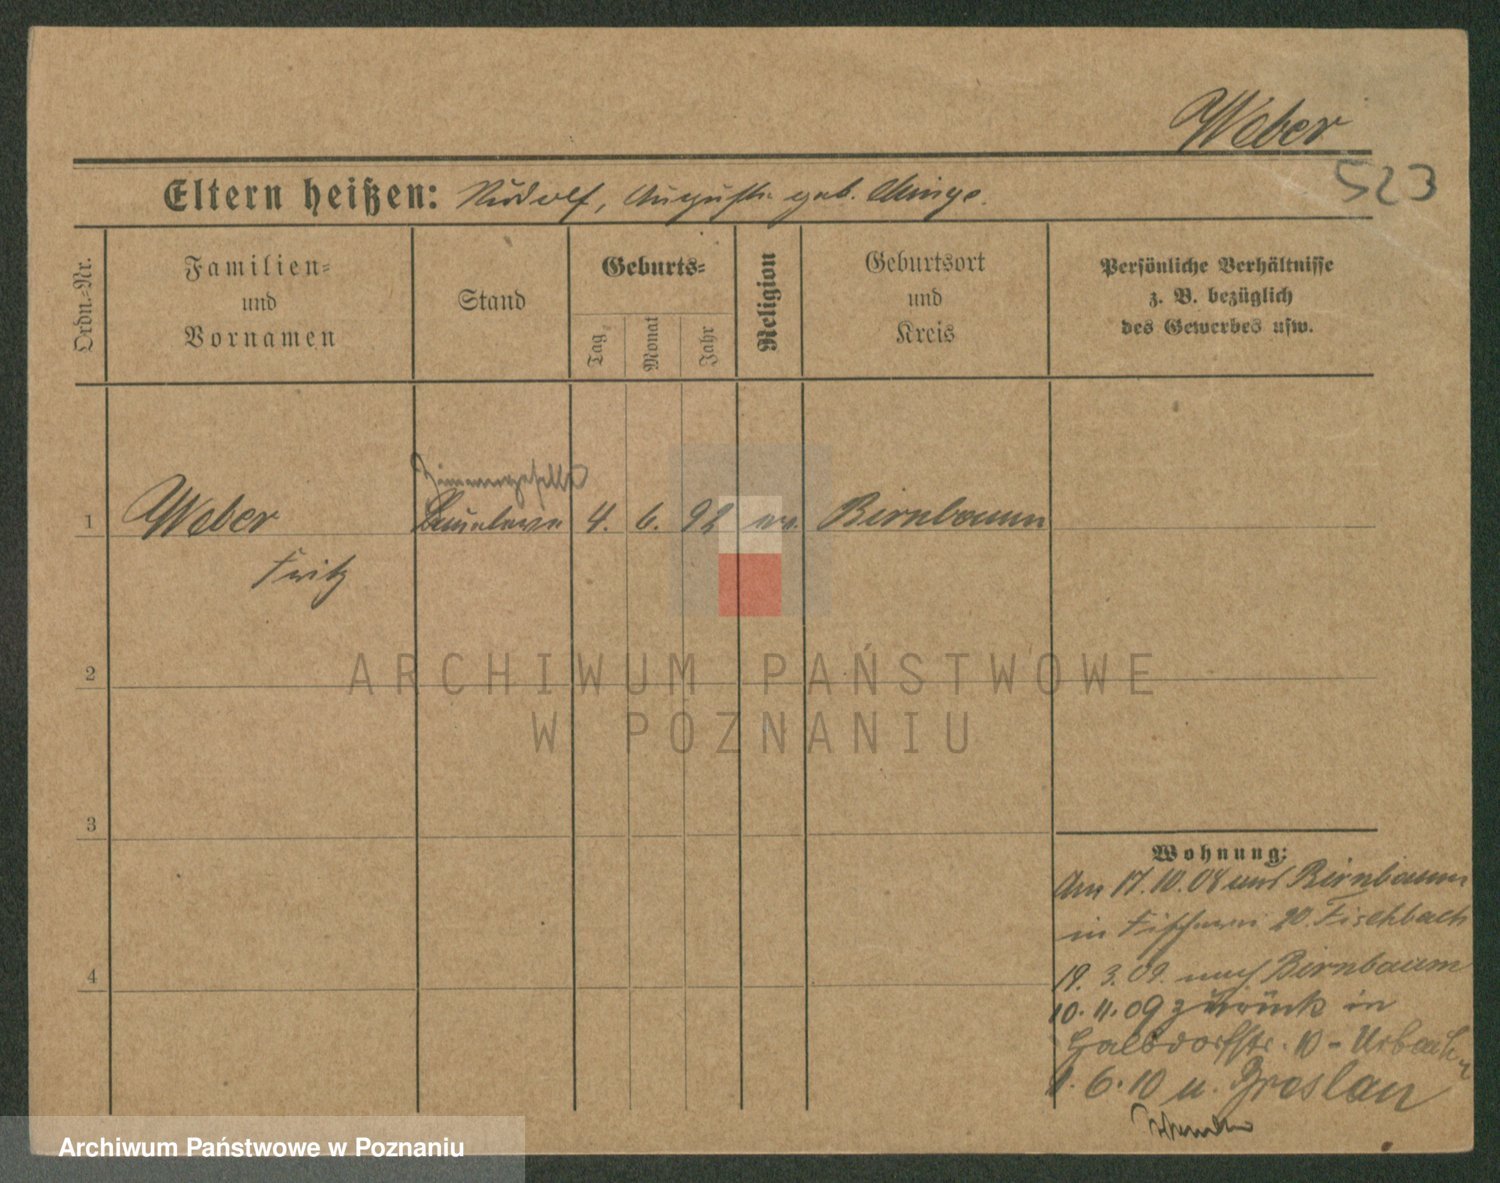 Weber
523
Eltern heißen: Rudolf, Auguste geb.
Ordn.-Nr.
Familien-
und
Vornamen
Stand
Geburts-
Tag
Monat
Jahr
Religion
Geburtsort
und
Kreis
Persönliche Verhältnisse
z. B. bezüglich
des Gewerbes usw.
Zimmergeselle
1 Weber 4. 6. 92 ev. Birnbaum
Fritz
2
ARCHIWUM PAŃSTWOWE
W POZNANIU
3
4
Wohnung:
Am 17.10.08 aus Birnbaum
in Fischerei 20. Fischbach
19. 3. 09. nach Birnbaum
10. 11. 09 zurück in
10 -
1. 6. 10 n. Breslau
Archiwum Państwowe w Poznaniu